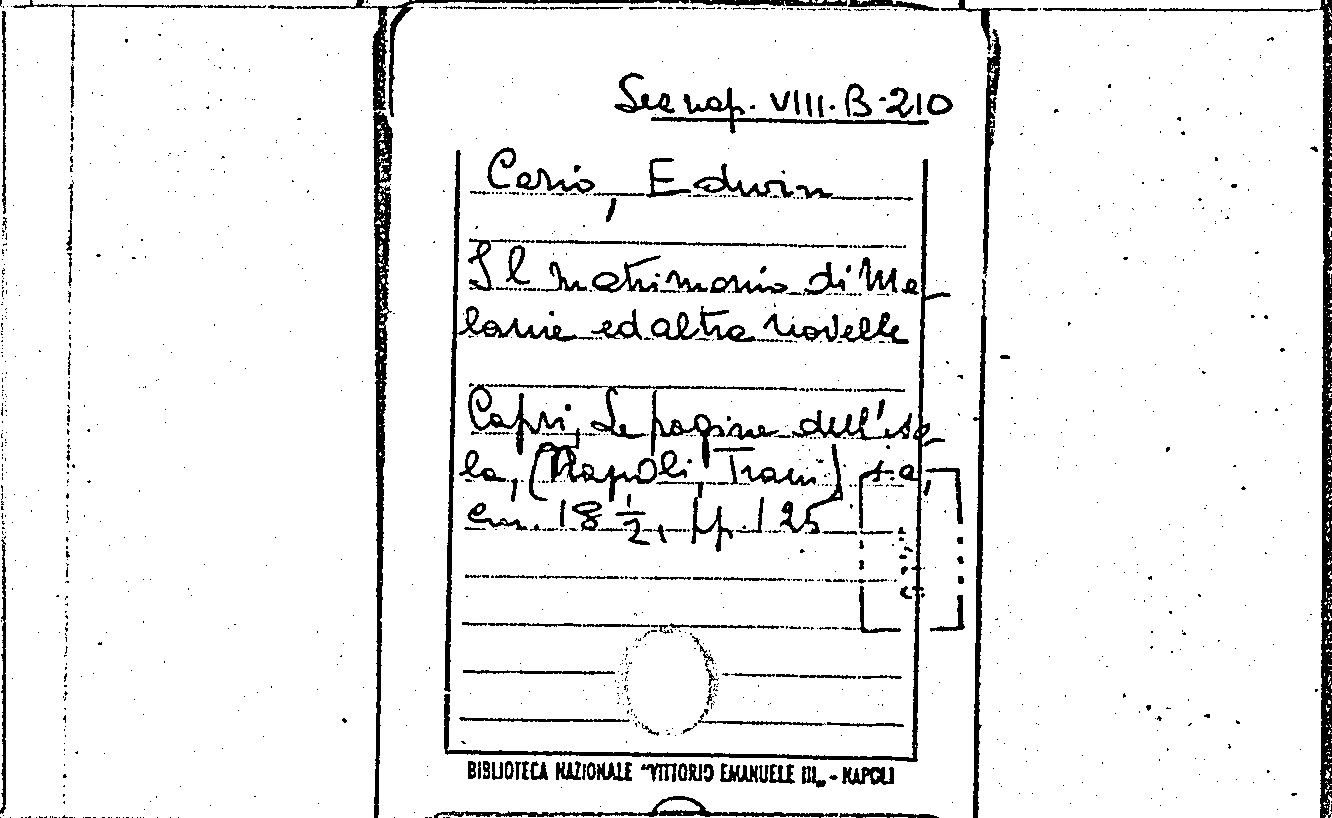 Sez nap. VIII. B. 210
Cerio, Edwin
Il matrimonio di Me-
lanie ed altre novelle
Capri, Le pagine dell'iso-
la, (Napoli, Trani) s.a,
cm. 18 ½, pp. 125
BIBLIOTECA NAZIONALE "VITTORIO EMANUELE III„ - NAPOLI